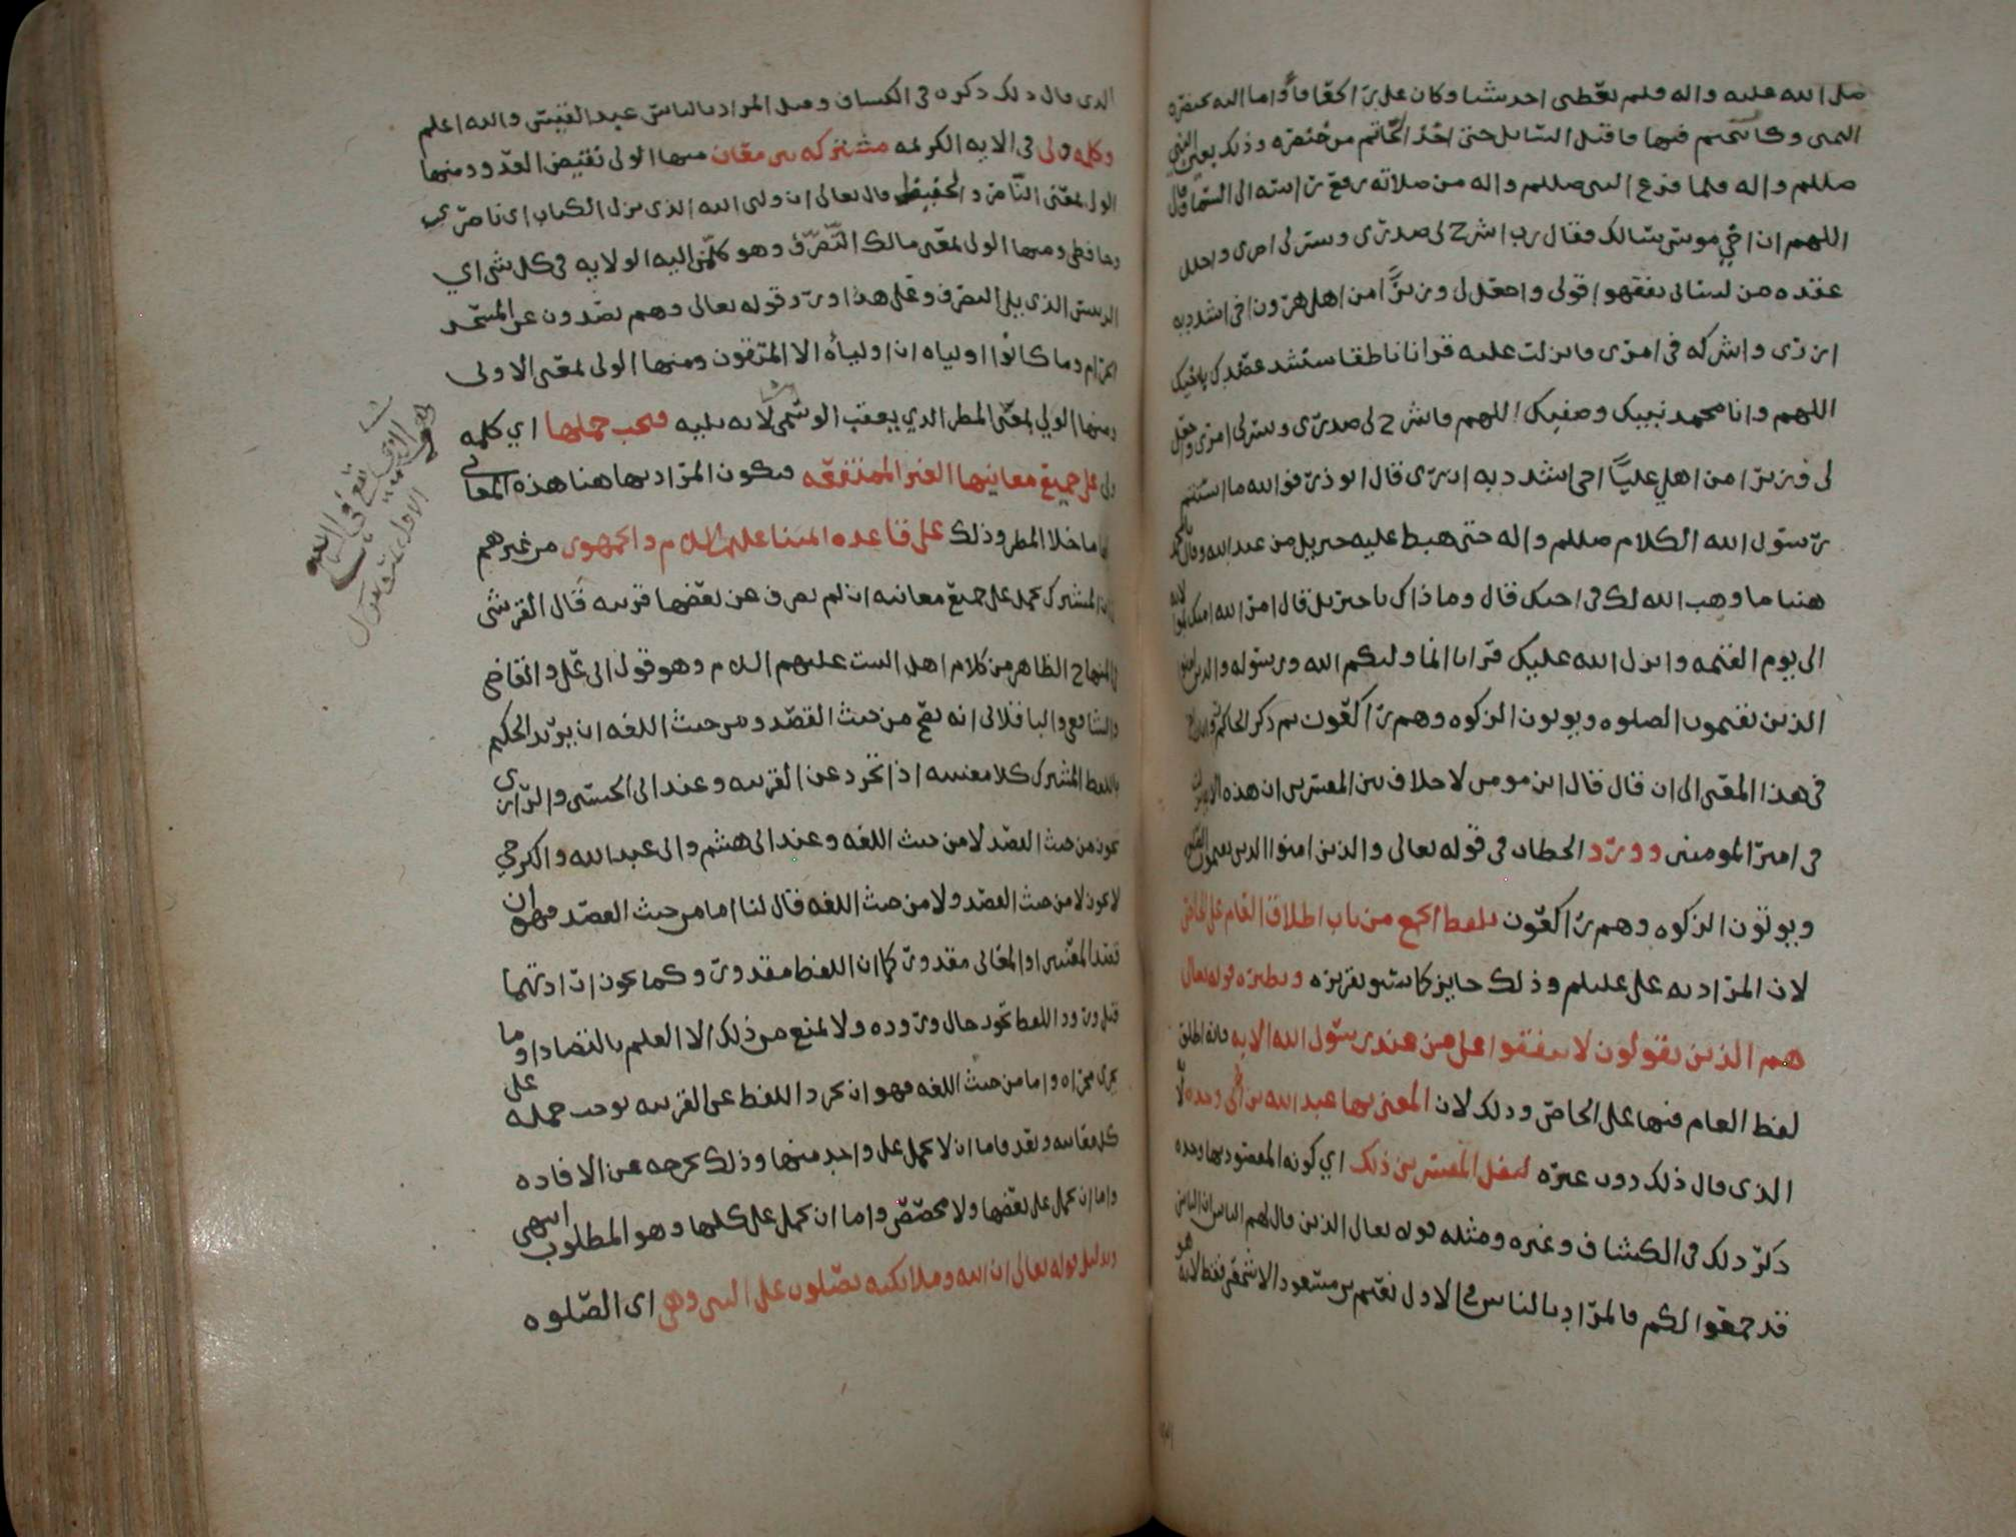 صلى الله عليه واله فلم يعطنى احد شيا وكان على راكعا فاومأ اليه بخنصره
اليمنى وكا يتختم فيها فاقبل السايل حتى اخذ الخاتم من خنصره وذلك بعين النبي
صللم واله فلما فرغ النبى صللم واله من صلاته رفع راسه الى السما وقال
اللهم ان اخي موسى سالك فقال رب اشرح لى صدرى ويسر لى امرى واحلل
عقده من لسانى يفقهوا قولى واجعل لى وزيرا من اهلى هرون اخى اشدد به
ازرى واشركه فى امرى فانزلت عليه قرانا ناطقا سنشد عضدك باخيك
اللهم وانا محمد نبيك وصفيك اللهم فاشرح لى صدرى ويسر لى امرى واجعل
لى وزيرا من اهلي عليا اخى اشدد به ازرى قال ابو ذر فوالله ما استتم
رسول الله الكلام صللم واله حتى هبط عليه جبريل من عند الله وقال يا محمد
هنيا ما وهب الله لك فى اخيك قال وما ذاك يا جبريل قال امر الله امتك
الى يوم القيمه وانزل الله عليك قرانا انما وليكم الله ورسوله والذين امنوا
الذين يقيمون الصلوه ويوتون الزكوه وهم راكعون ثم ذكر الحاكم
فى هذا المعنى الى ان قال قال ابن مومن لا خلاف بين المفسرين ان هذه الايه نزلت
فى امير المومنين وورد الخطاب فى قوله تعالى والذين امنوا الذين يقيمون الصلوه
ويوتون الزكوه وهم راكعون بلفظ الجمع من باب اطلاق العام على الخاص
لان المراد به على عليلم وذلك جايز كاسبق تقريره ونظيره قوله تعالى
هم الذين يقولون لا تنفقوا على من عند رسول الله الايه فانه اطلق
لفظ العام فيها على الخاص وذلك لان المعنى بها عبد الله بن أبى وحده
الذى قال ذلك دون غيره لنقل المفسرين ذلك اي كونه المقصود بها وحده
ذكر ذلك فى الكشاف وغيره ومثله قوله تعالى الذين قال لهم الناس ان الناس
قد جمعوا لكم فالمراد بالناس فى الاول نعيم بن مسعود الاشجعى فقط لانه هو
الذى قال ذلك ذكره فى الكشاف وقيل المراد بالناس عبد القيس والله اعلم
وكلمه ولى فى الايه الكريمه مشتركه بين معان منها الولى نقيض العدو ومنها
الولى بمعنى الناصر والحفيظ قال تعالى ان وليى الله الذى نزل الكتاب اى ناصرى
وحافظى ومنها الولى بمعنى مالك التصرف وهو كلمن اليه الولايه فى كل شى اي
الرييس الذى يلى التصرف وعلى هذا ورد قوله تعالى وهم يصدون عن المسجد
الحرام وما كانوا اولياه ان اولياه الا المتقون ومنها الولى بمعنى الاولى
ومنها الولي بمعنى المطر الذي يعقب الوسمى لانه يليه فيجب حملها اي كلمه
ولى على جميع معانيها الغير الممتنعه فيكون المراد بها هنا هذه المعانى
ما خلا المطر وذلك على قاعده ايمتنا عليهم السلام والجمهور من غيرهم
ان المشترك يحمل على جميع معانيه ان لم يصرف عن بعضها قرينه قال القرشى
فى المنهاج الظاهر من كلام اهل البيت عليهم السلام وهو قول ابى على والقاضى
والشافعى والباقلانى انه يصح من حيث القصد ومن حيث اللغه ان يريد الحكيم
باللفظ المشترك كلا معنييه اذا تجرد عن القرينه وعند ابى الحسين والرازى
يجوز من حيث القصد لا من حيث اللغه وعند ابى هشم وابى عبد الله والكرخي
لا يجوز لا من حيث القصد ولا من حيث اللغه قال لنا اما من حيث القصد فهو ان
قصد المعنيين او المعانى مقدور كما ان اللفظ مقدور وكما يجوز ان ارادتهما
قبل ورود اللفظ تجوز حال وروده ولا يمنع من ذلك الا العلم بالتضاد او ما
يجرى مجراه واما من حيث اللغه فهو ان تجرد اللفظ عن القرينه يوجب حمله على
كل معانيه وبعد فاما ان لا يحمل على واحد منها وذلك يخرجه عن الافاده
واما ان يحمل على بعضها ولا مخصص واما ان يحمل على كلها وهو المطلوب انتهى
وبدليل قوله تعالى ان الله وملايكته يصلون على النبى وهى اى الصلوه